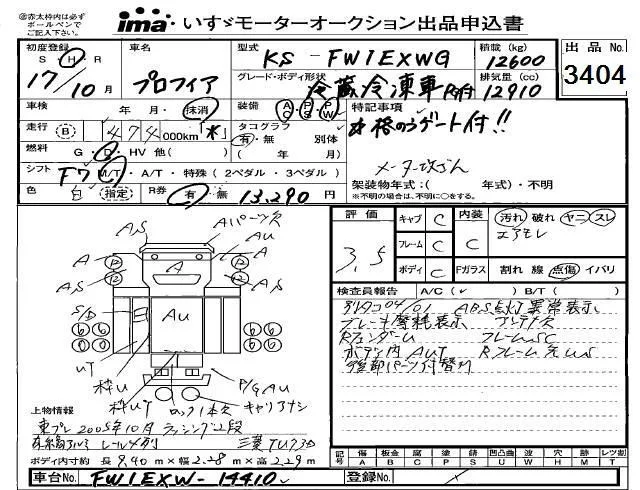 ㊟赤太枠内は必ず
ボールペンで
ご記入下さい。
ima いすゞモーターオークション出品申込書
初度登録 車名 型式 KS - FW1EXWG 積載 (kg) 12600 出品 No.
S H R 17/10 月 プロフィア グレード・ボディ形状 冷蔵冷凍車 排気量 (cc) 12910 3404
車検 年 月・抹消 装備 AC・PS・PW 特記事項
走行 B 474 000km 「米」 タコグラフ 格納ゲート付!!
燃料 G・D・HV 他 ( ) 有・無 別体
( 年 月) メーター改ざん
シフト F7 M/T・A/T・特殊 (2ペダル・3ペダル) 架装物年式:( 年式)・不明
色 白 (指定) R券 有・無 13,290 円 ※不明の場合は、不明に○をする。
評価 3.5 キャブ C 内装 C 汚れ 破れ ヤニ スレ
フレーム C エアモレ
ボディ C Fガラス 割れ 線 点傷 イバリ
検査員報告 A/C ( ✓ ) B/T ( )
04/01 ABS点灯 異常表示、
ブレーキ摩耗表示 アンテナ欠
Rフェンダー U フレームSC
ボディ内 AUT Rフレーム先US
後部パーツ付替り
A,S Aパーツ欠
A A AU
A
A,S A,S
S/B AU
UT
枠U P/G AU
枠UT ロック1本欠 キャリアナシ
上物情報
東プレ 2005年10月 ラッシング2段
レール4列 三菱 TU73D
ボディ内寸約 長 9.40 m × 幅 2.28 m × 高 2.29 m
記号 傷 A 板金 B 腐 C 塗 P 錆 S 凹凸曲 U 波 W 穴 H 痕 M レツ割 T
車台No. FW1EXW-14410 登録No.